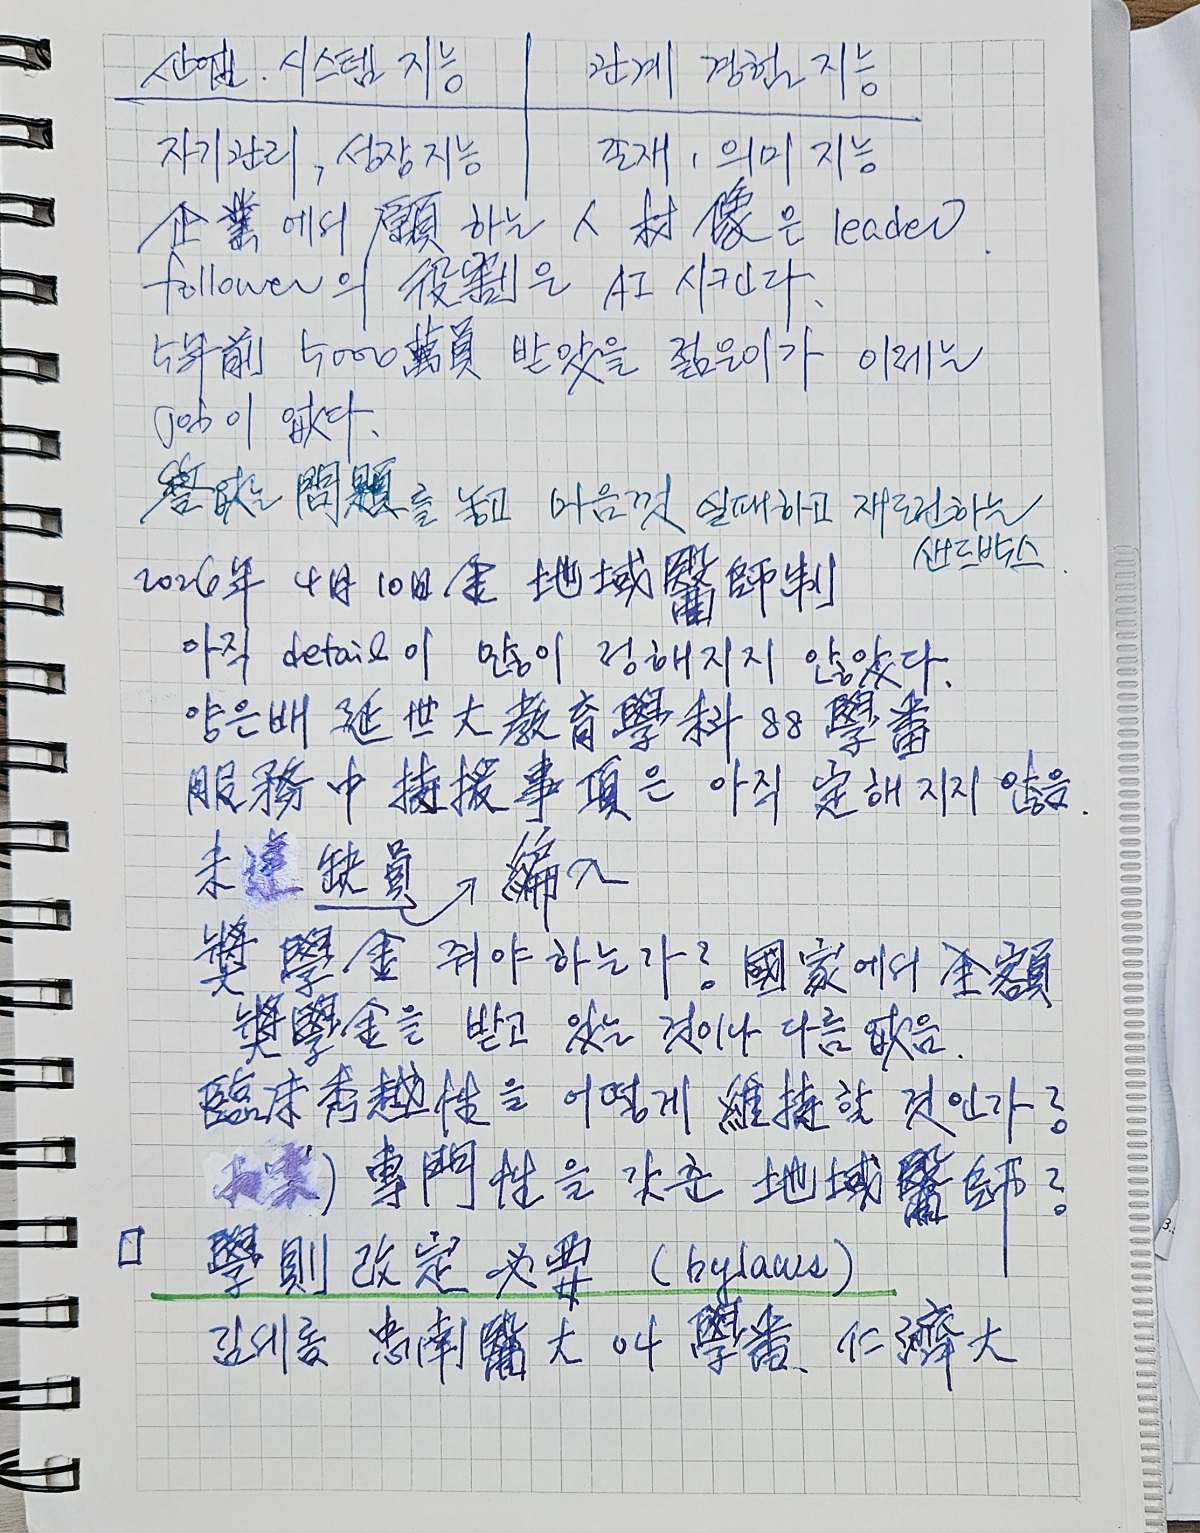 산업. 시스템 지능 | 관계 경험 지능
자기관리, 성장지능 | 존재, 의미 지능
企業에서 願하는 人材像은 leader.
follower의 役割은 AI 시킨다.
5年前 5000萬員 받았을 젊은이가 이제는
job이 없다.
答없는 問題를 놓고 마음껏 실패하고 재도전하는
샌드박스.
2026年 4月 10日 金 地域醫師制
아직 detail이 많이 정해지지 않았다.
양은배 延世大敎育學科 88 學番
服務中 持援事項은 아직 定해지지 않음.
未達 缺員 → 編入
奬學金 줘야 하는가? 國家에서 全額
奬學金을 받고 있는 것이나 다름없음.
臨床秀越性을 어떻게 維持할 것인가?
專門性을 갖춘 地域醫師?
□ 學則改定 必要 (bylaws)
김세종 忠南醫大 04 學番. 仁濟大